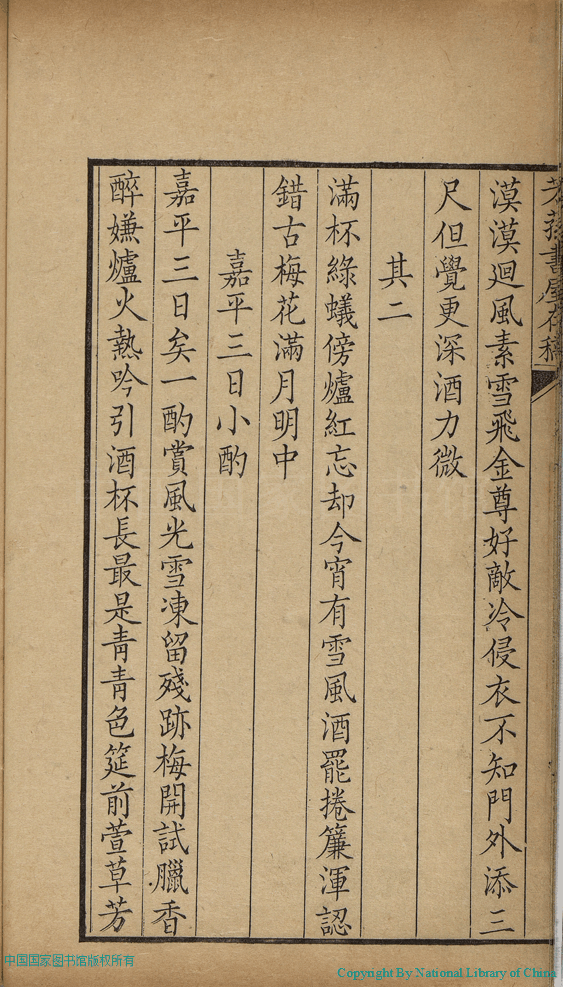 漠漠迴風素雪飛金尊好敵冷侵衣不知門外添三
尺但覺更深酒力微
其二
滿杯綠蟻傍爐紅忘却今宵有雪風酒罷捲簾渾認
錯古梅花滿月明中
嘉平三日小酌
嘉平三日矣一酌賞風光雪凍留殘跡梅開試臘香
醉嫌爐火熱吟引酒杯長最是青青色筵前萱草芳
書屋存稿
中国国家图书馆版权所有
Copyright By National Library of China